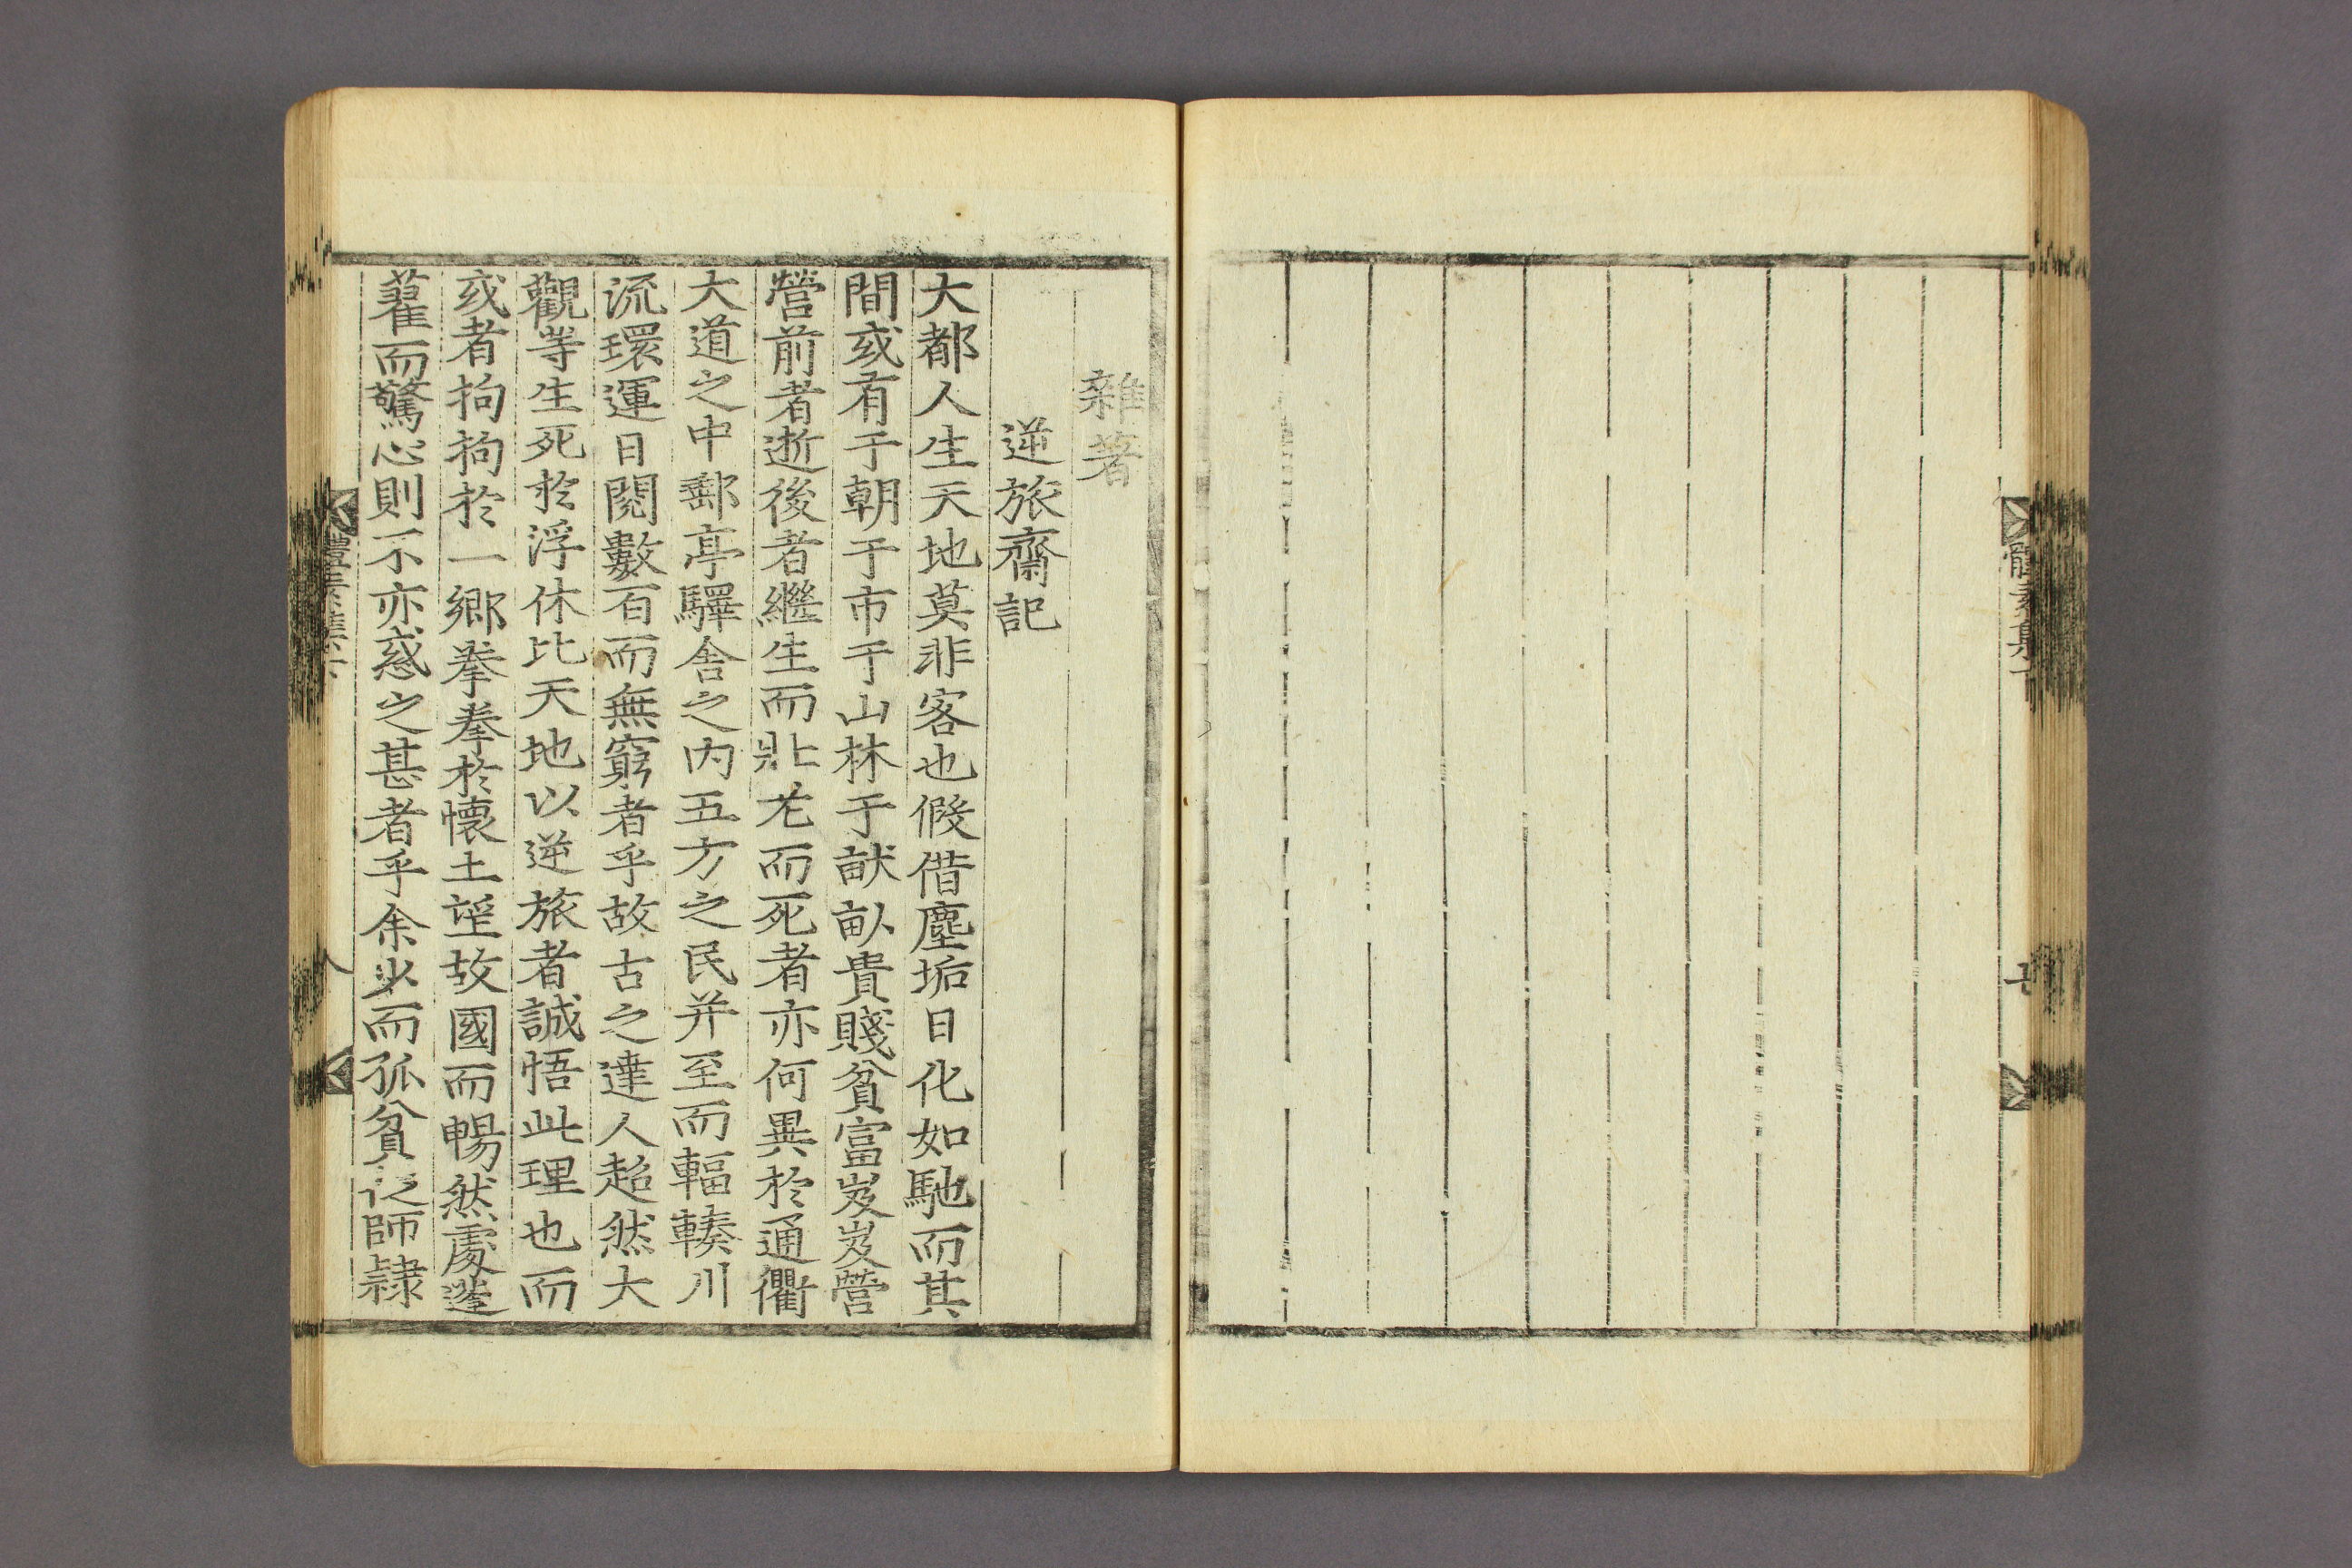 雜著
逆旅齋記
大都人生天地莫非客也假借塵垢日化如馳而其
間或有于朝于市于山林于畎畒貴賤貧富岌岌營
營前者逝後者繼生而壯老而死者亦何異於通衢
大道之中郵亭驛舍之内五方之民并至而輻輳川
流環運日閱數百而無窮者乎故古之達人超然大
觀等生死於浮休比天地以逆旅者誠悟此理也而
或者拘拘於一鄉拳拳於懷土望故國而暢然處逆
藋而驚心則不亦惑之甚者乎余少而孤貧從師隷
體素集
七
體素集
八